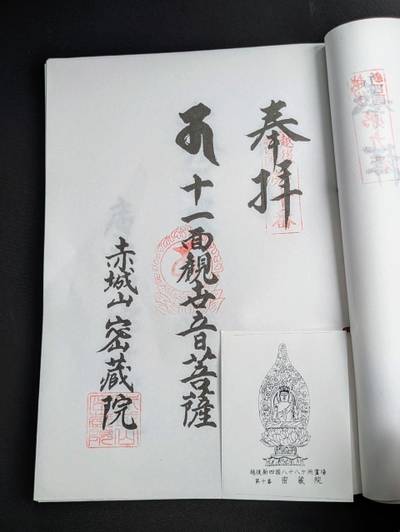 奉拝
十一面観世音菩薩
赤城山 密蔵院
越後新四国八十八ヶ所霊場
第十番 密蔵院